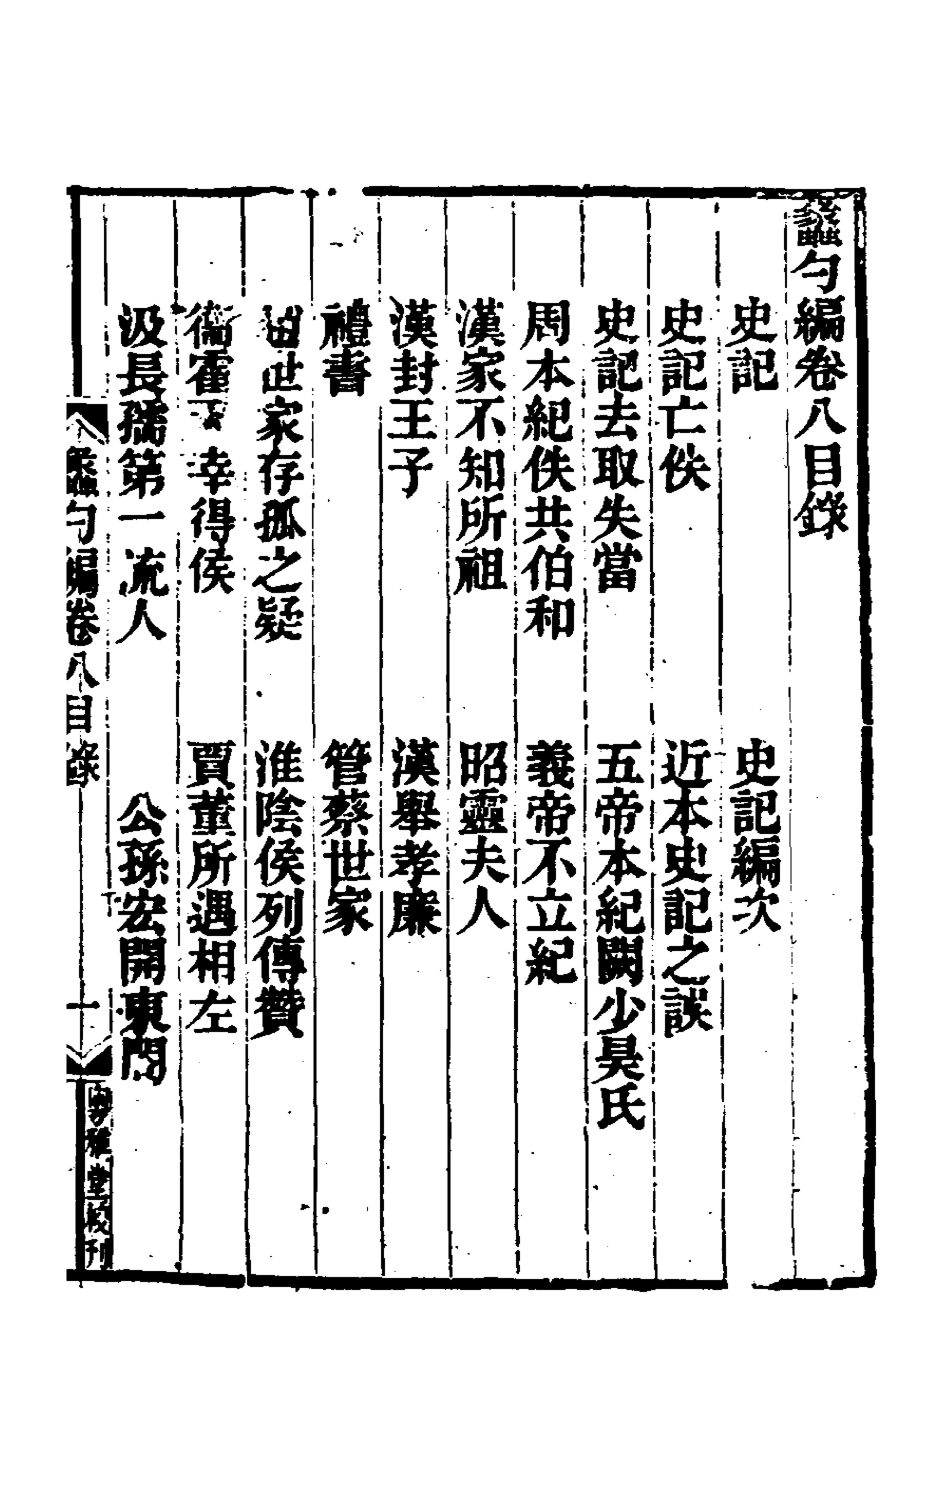 蠡勺編卷八目錄
史記　史記編次
史記亡佚　近本史記之誤
史記去取失當　五帝本紀闕少昊氏
周本紀佚共伯和　義帝不立紀
漢家不知所祖　昭靈夫人
漢封王子　漢舉孝廉
禮書　管蔡世家
世家存孤之疑　淮陰侯列傳贊
衞霍 幸得侯　賈董所遇相左
汲長孺第一流人　公孫宏開東閣
蠡勺編卷八目錄　一　粵雅堂校刊